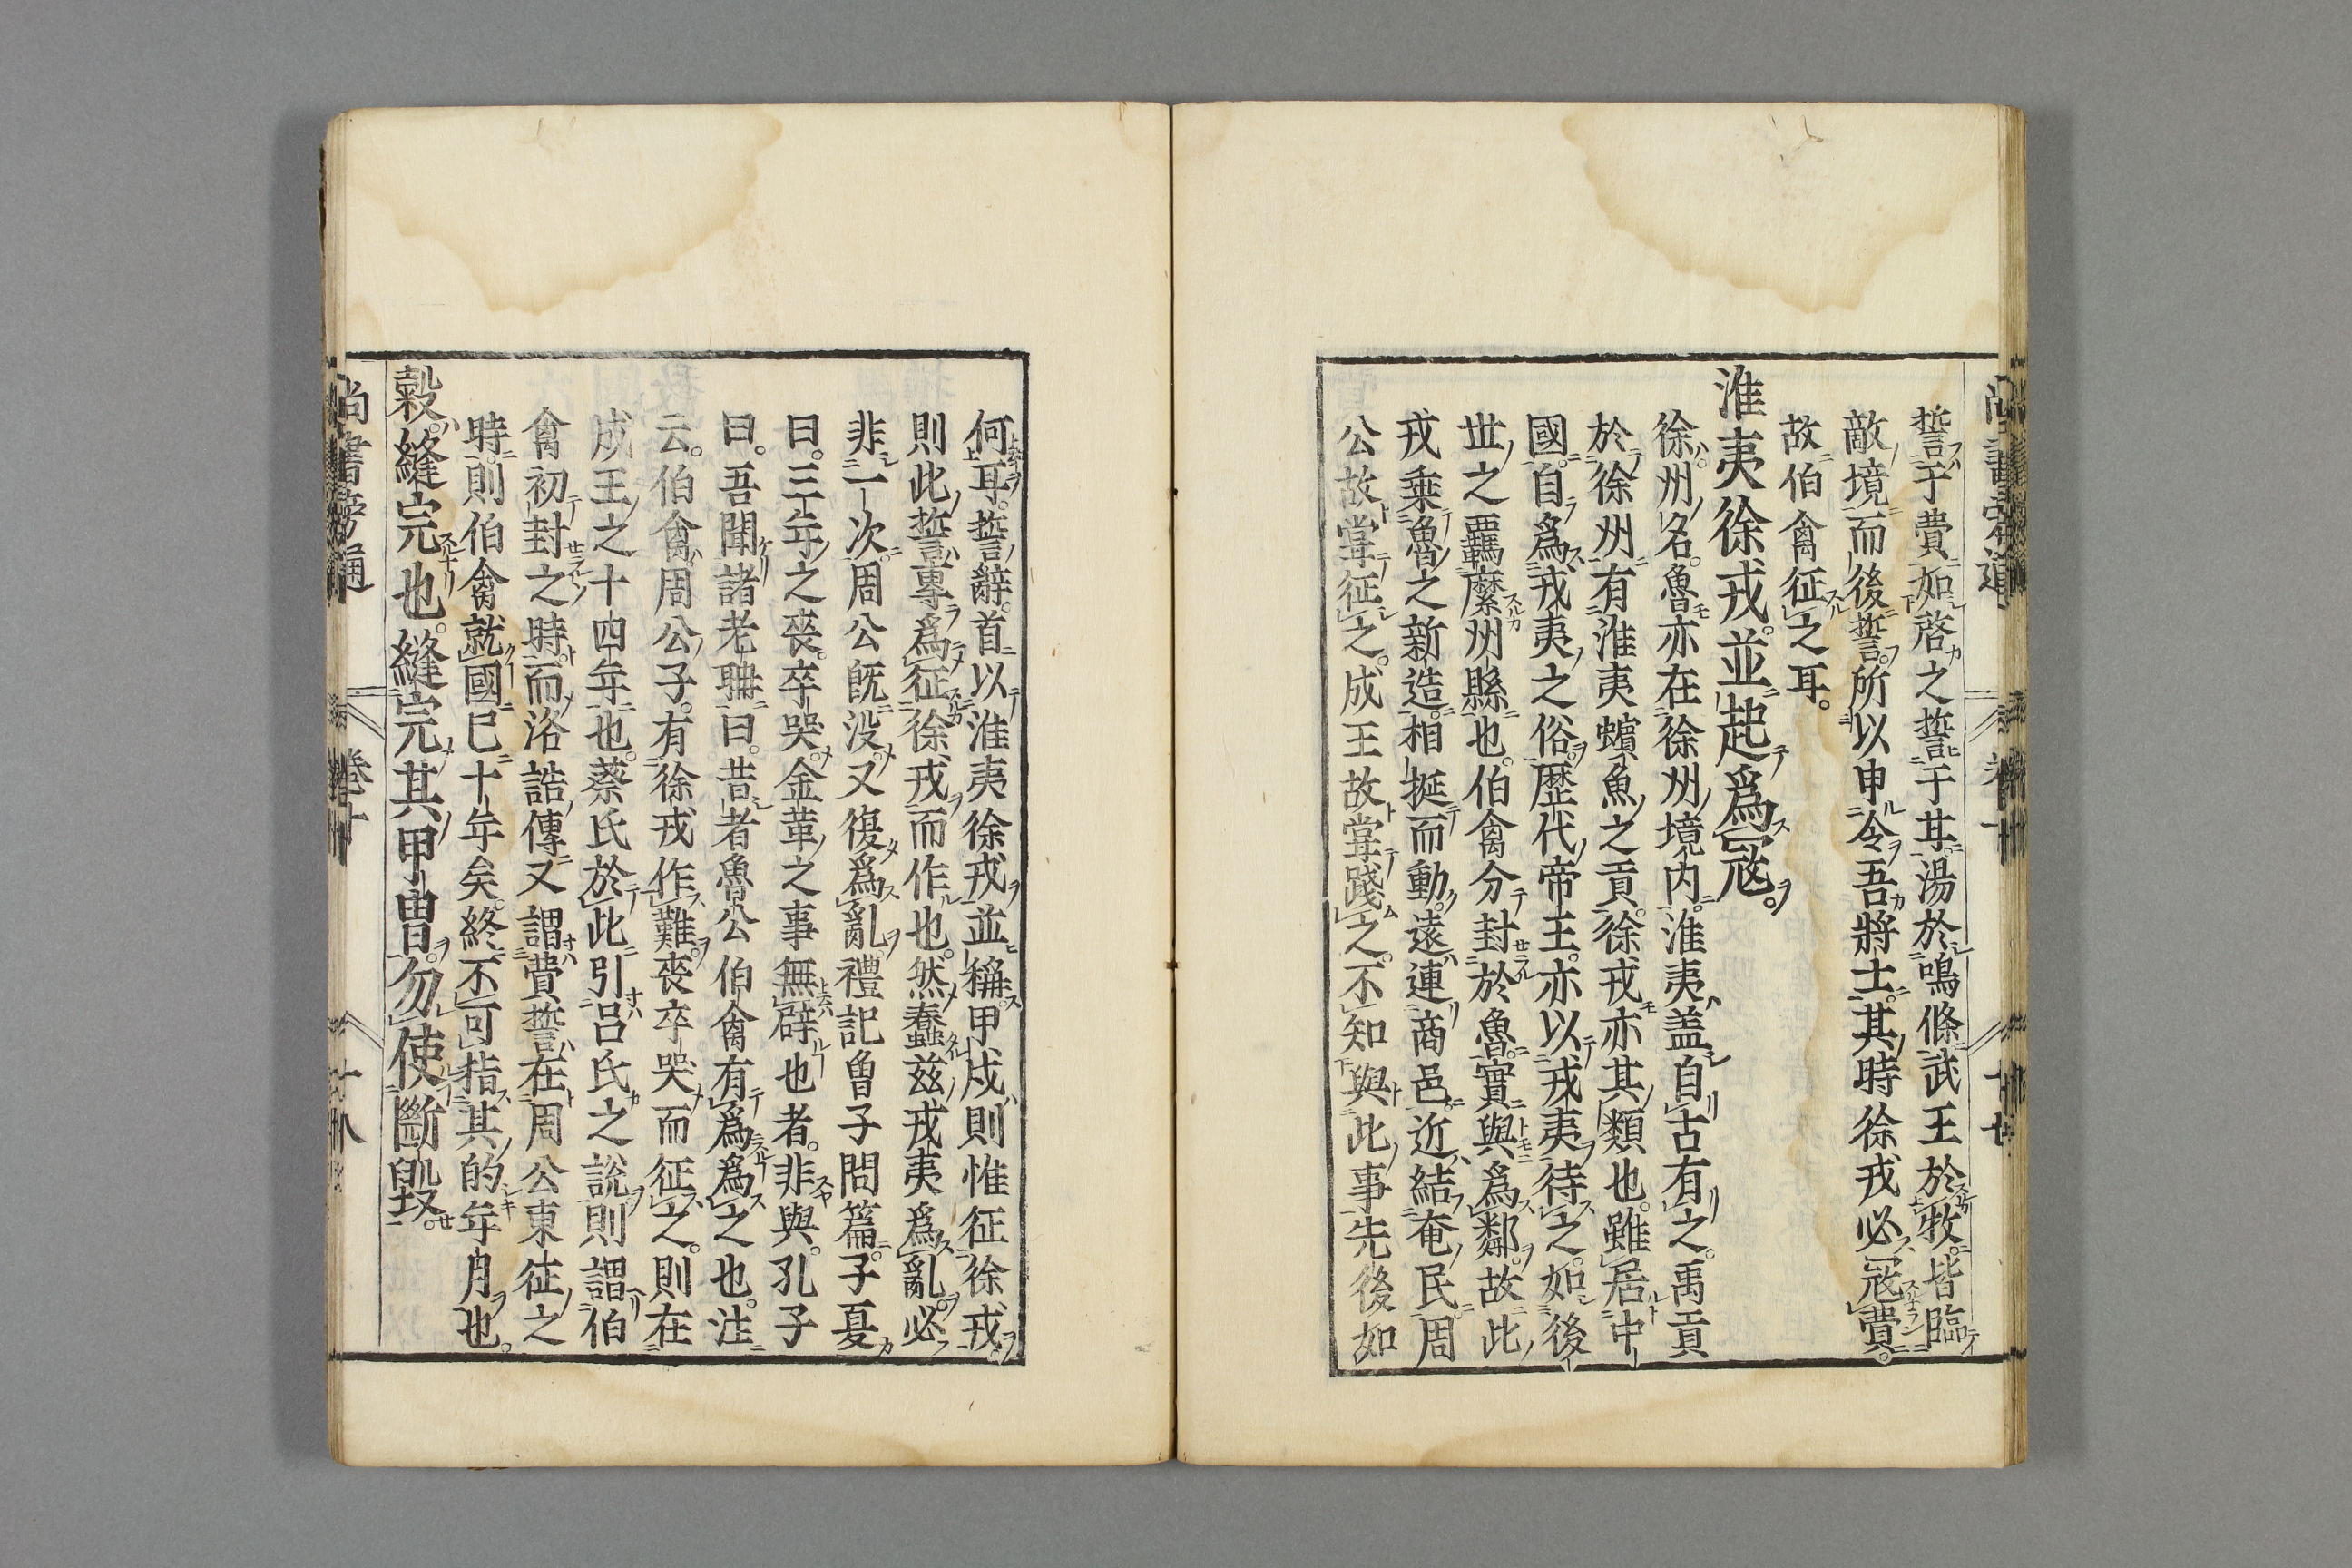 誓于費。如啓之誓于其。湯於鳴條。武王於牧。皆臨
敵境而後誓。所以申令吾將士。其時徐戎必冦費。
故伯禽征之耳。
淮夷徐戎。並起爲冦。
徐州名。魯亦在徐州境内。淮夷盖自古有之。禹貢
於徐州有淮夷蠙魚之貢。徐戎亦其類也。雖居中
國。自爲戎夷之俗。歴代帝王。亦以戎夷待之。如後
世之覊縻州縣也。伯禽分封於魯。實與爲鄰。故此
戎乗魯之新造。相挻而動。遠連商邑。近結奄民。周
公故甞征之。成王故甞踐之。不知與此事先後如
何耳。誓辭首以淮夷徐戎並稱。甲戌則惟征徐戎
則此誓專爲征徐戎而作也。然蠢茲戎夷爲亂。必
非一次。周公旣没。又復爲亂。禮記曽子問篇。子夏
曰。三年之喪。卒哭。金革之事無辟也者。非與。孔子
曰。吾聞諸老聃曰。昔者魯公伯禽有爲爲之也。注
云。伯禽周公子。有徐戎作難。喪卒哭而征之。則在
成王之十四年也。蔡氏於此引呂氏之説。則謂伯
禽初封之時。而洛誥傳又謂費誓在周公東征之
時。則伯禽就國已十年矣。終不可指其的年月也。
敹。縫完也。縫完其甲冑。勿使斷毀。
尚書旁通
卷十
十八